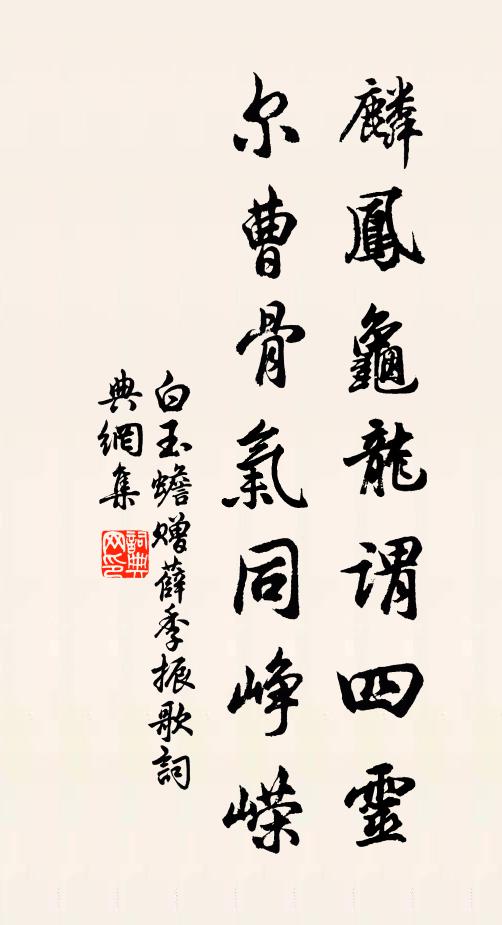 麟鳳龜龍謂四靈
尔曹骨氣同崢嶸
白玉蟾赠薛季振歌詞
典網集
詞典网印